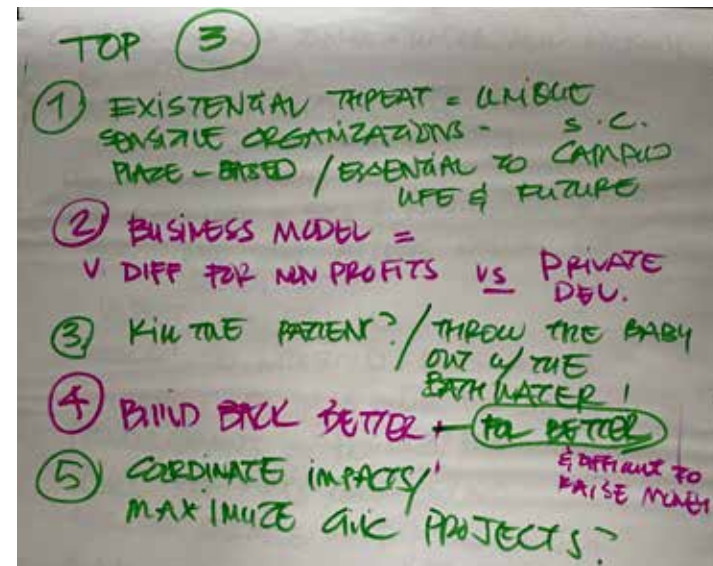 TOP 3
1 EXISTENTIAL THREAT = UNIQUE
SENSITIVE ORGANIZATIONS - S.C.
PLACE-BASED / ESSENTIAL TO CAMPUS
LIFE & FUTURE
2 BUSINESS MODEL =
V DIFF FOR NON PROFITS VS PRIVATE
DEV.
3 KILL THE PATIENT? / THROW THE BABY
OUT W/ THE
BATH WATER!
4 BUILD BACK BETTER + FOR BETTER
& DIFFICULT TO
RAISE MONEY
5 COORDINATE IMPACTS/
MAXIMIZE CIVIC PROJECTS?